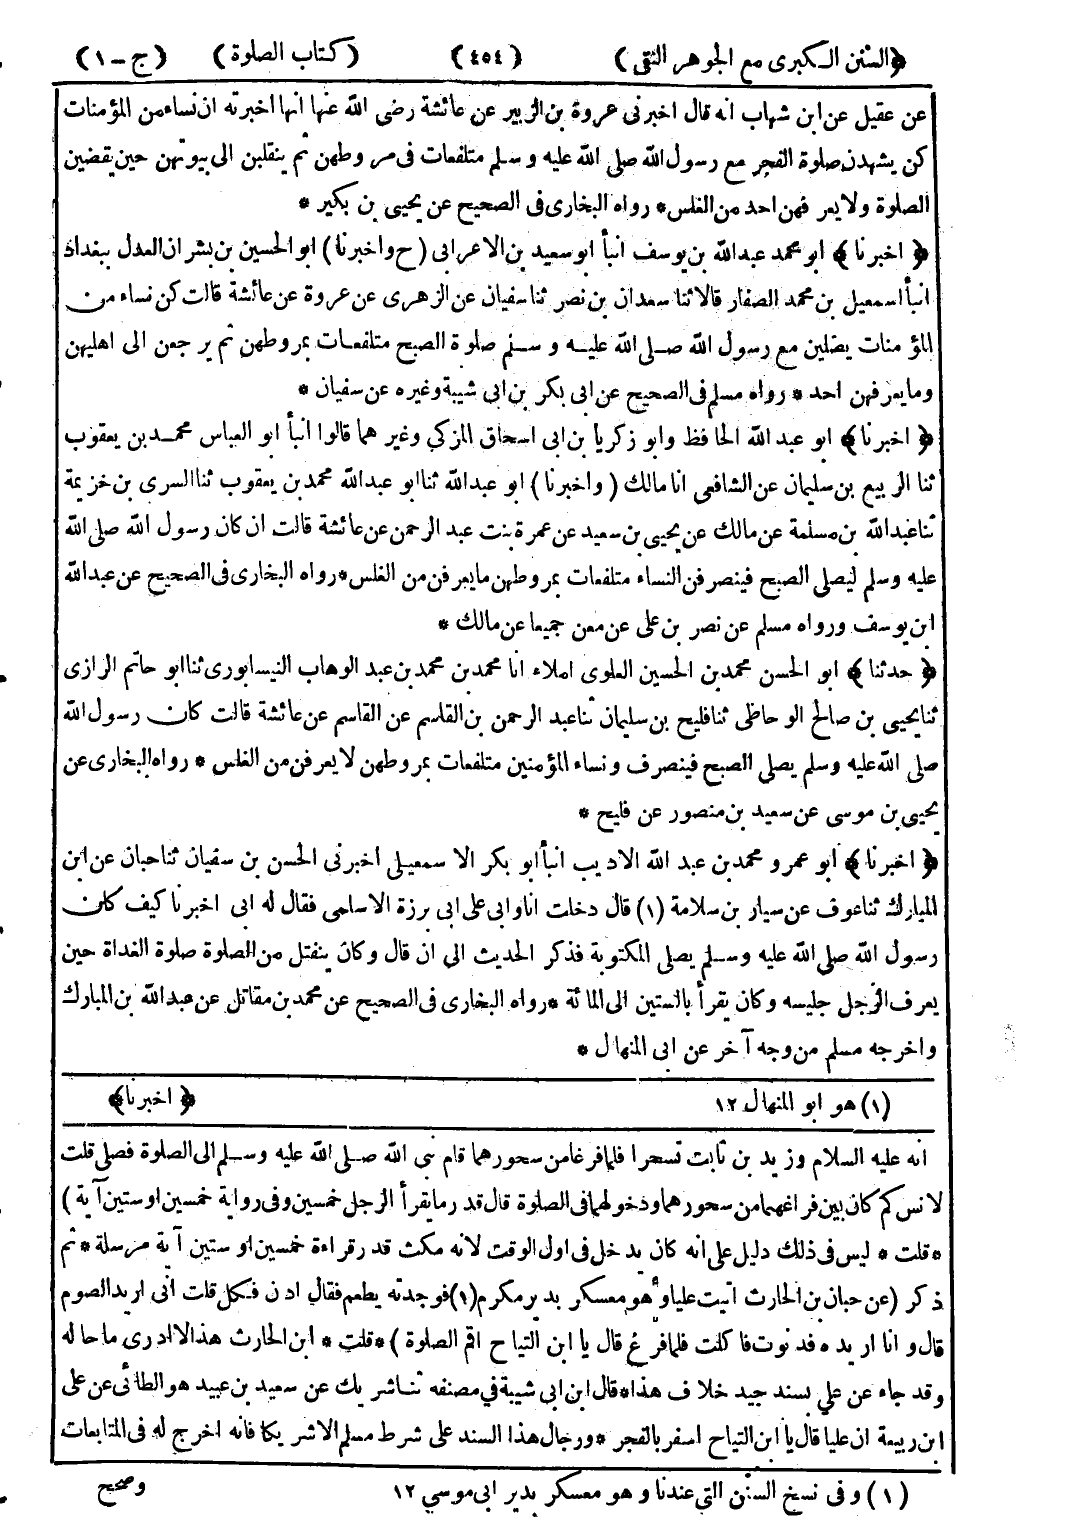 ﴿السنن الكبرى مع الجوهر النقى﴾ (٤٥٤) (كتاب الصلوة) (ج-١)
عن عقيل عن ابن شهاب انه قال اخبرنى عروة بن الزبير عن عائشة رضى الله عنها انها اخبرته ان نساء من المؤمنات
كن يشهدن صلوة الفجر مع رسول الله صلى الله عليه و سلم متلفعات فى مروطهن ثم ينقلبن الى بيوتهن حين يقضين
الصلوة ولا يعرفهن احد من الغلس * رواه البخارى فى الصحيح عن يحيى بن بكير *
﴿اخبرنا﴾ ابو محمد عبدالله بن يوسف انبأ ابو سعيد بن الاعرابى (ح واخبرنا) ابو الحسين بن بشران العدل ببغداد
انبأ اسمعيل بن محمد الصفار قالا ثنا سعدان بن نصر ثنا سفيان عن الزهرى عن عروة عن عائشة قالت كن نساء من
المؤمنات يصلين مع رسول الله صلى الله عليه و سلم صلوة الصبح متلفعات بمروطهن ثم يرجعن الى اهليهن
وما يعرفهن احد * رواه مسلم فى الصحيح عن ابى بكر بن ابى شيبة وغيره عن سفيان *
﴿اخبرنا﴾ ابو عبد الله الحافظ وابو زكريا بن ابى اسحاق المزكي وغيرهما قالوا انبأ ابو العباس محمد بن يعقوب
ثنا الربيع بن سليمان عن الشافعى انا مالك (واخبرنا) ابو عبدالله ثنا ابو عبدالله محمد بن يعقوب ثنا السرى بن خزيمة
ثنا عبدالله بن مسلمة عن مالك عن يحيى بن سعيد عن عمرة بنت عبد الرحمن عن عائشة قالت ان كان رسول الله صلى الله
عليه وسلم ليصلى الصبح فينصرفن النساء متلفعات بمروطهن ما يعرفن من الغلس * رواه البخارى فى الصحيح عن عبدالله
ابن يوسف ورواه مسلم عن نصر بن على عن معن جميعا عن مالك *
﴿حدثنا﴾ ابو الحسن محمد بن الحسين العلوى املاء انا محمد بن محمد بن عبد الوهاب النيسابورى ثنا ابو حاتم الرازى
ثنا يحيى بن صالح الوحاظى ثنا فليح بن سليمان ثنا عبد الرحمن بن القاسم عن القاسم عن عائشة قالت كان رسول الله
صلى الله عليه وسلم يصلى الصبح فينصرف ونساء المؤمنين متلفعات بمروطهن لا يعرفن من الغلس * رواه البخارى عن
يحيى بن موسى عن سعيد بن منصور عن فليح *
﴿اخبرنا﴾ ابو عمرو محمد بن عبد الله الاديب انبأ ابو بكر الاسمعيلى اخبرنى الحسن بن سفيان ثنا حبان عن ابن
المبارك ثنا عوف عن سيار بن سلامة (١) قال دخلت انا وابى على ابى برزة الاسلمى فقال له ابى اخبرنا كيف كان
رسول الله صلى الله عليه وسلم يصلى المكتوبة فذكر الحديث الى ان قال وكان ينفتل من الصلوة صلوة الغداة حين
يعرف الرجل جليسه وكان يقرأ بالستين الى المائة * رواه البخارى فى الصحيح عن محمد بن مقاتل عن عبدالله بن المبارك
واخرجه مسلم من وجه آخر عن ابى المنهال *
(١) هو ابو المنهال ١٢ ﴿اخبرنا﴾
انه عليه السلام وزيد بن ثابت تسحرا فلما فرغا من سحورهما قام نبى الله صلى الله عليه وسلم الى الصلوة فصلى قلت
لانس كم كان بين فراغهما من سحورهما ودخولهما فى الصلوة قال قدر ما يقرأ الرجل خمسين وفى رواية خمسين او ستين آية )
* قلت * ليس فى ذلك دليل على انه كان يدخل فى اول الوقت لانه مكث قدر قراءة خمسين او ستين آية مرسلة * ثم
ذكر (عن حبان بن الحارث اتيت عليا وهو معسكر بدير مكرم (١) فوجدته يطعم فقال ادن فكل قلت انى اريد الصوم
قال وانا اريده فدنوت فاكلت فلما فرغ قال يا ابن التياح اقم الصلوة) * قلت * ابن الحارث هذا لا ادرى ما حاله
وقد جاء عن علي بسند جيد خلاف هذا * قال ابن ابى شيبة في مصنفه ثنا شريك عن سعيد بن عبيد هو الطائى عن على
ابن ربيعة ان عليا قال يا ابن التياح اسفر بالفجر * ورجال هذا السند على شرط مسلم الا شريكا فانه اخرج له فى المتابعات
(١) وفى نسخ السنن التي عندنا وهو معسكر بدير ابى موسي ١٢ وصحيح